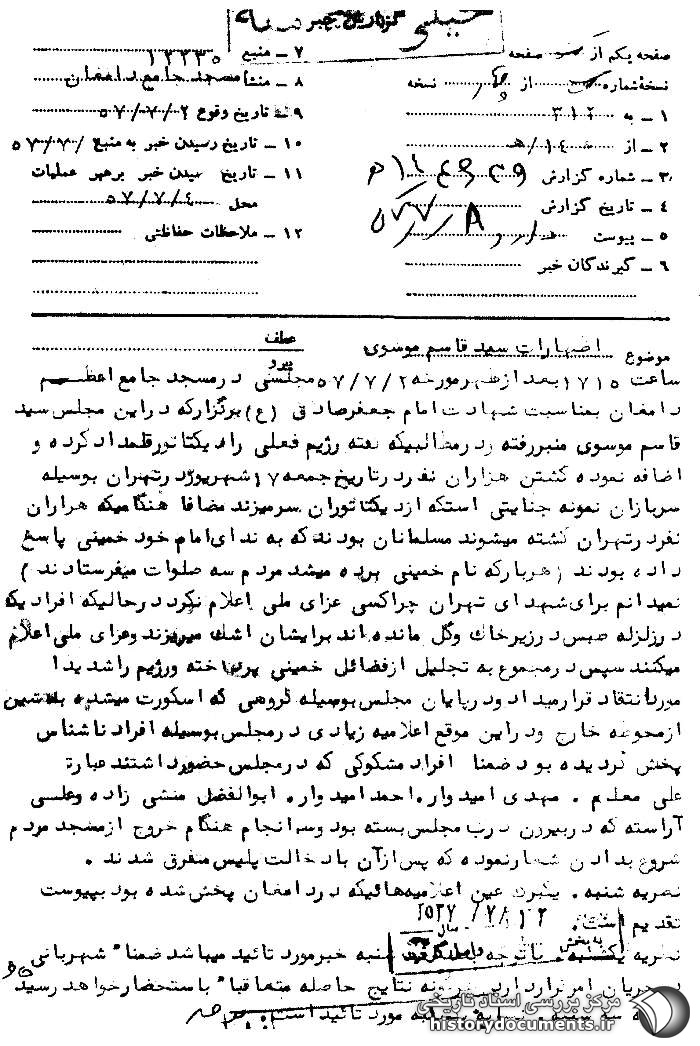 گزارش خبر
صفحه یکم از صفحه
نسخهٔ شماره از نسخه
۱ - به ۳۱۲
۲ - از ۱۴/ه
۳ - شماره گزارش
۴ - تاریخ گزارش
۵ - پیوست
۶ - گیرندگان خبر
۷ - منبع ۱۲۲۳۵
۸ - منشأ مسجد جامع دامغان
۹ - تاریخ وقوع ۵۷/۷/۲
۱۰ - تاریخ رسیدن خبر به منبع ۵۷/۷/
۱۱ - تاریخ رسیدن خبر برهبر عملیات
محل ۵۷/۷/۴
۱۲ - ملاحظات حفاظتی
موضوع اظهارات سید قاسم موسوی
عطف
پیرو
ساعت ۱۷۱۵ بعد از ظهر مورخه ۵۷/۷/۲ مجلسی در مسجد جامع اعظم
دامغان بمناسبت شهادت امام جعفر صادق (ع) برگزار که در این مجلس سید
قاسم موسوی منبر رفته و در مطالبیکه گفته رژیم فعلی را دیکتاتور قلمداد کرده و
اضافه نموده کشتن هزاران نفر در تاریخ جمعه ۱۷ شهریور در تهران بوسیله
سربازان نمونه جنایتی استکه از دیکتاتوران سر میزند مضافا هنگامیکه هزاران
نفر در تهران کشته میشوند مسلمانان بودند که به ندای امام خود خمینی پاسخ
داده بودند (هر بار که نام خمینی برده میشد مردم سه صلوات میفرستادند)
نمیدانم برای شهدای تهران چرا کسی عزای ملی اعلام نکرد در حالیکه افرادیکه
در زلزله طبس در زیر خاک وگل مانده اند برایشان اشک میریزند و عزای ملی اعلام
میکنند سپس در مجموع به تجلیل از فضائل خمینی پرداخته و رژیم را شدیدا
مورد انتقاد قرار میداد و در پایان مجلس بوسیله گروهی که اسکورت میشده با ماشین
از محوطه خارج و در این موقع اعلامیه زیادی در مجلس بوسیله افراد ناشناس
پخش گردیده بود ضمنا افراد مشکوکی که در مجلس حضور داشتند عبارت
علی معلم . مهدی امیدوار . احمد امیدوار . ابوالفضل منشی زاده وعلی
آراسته که در بیرون درب مجلس بسته بود و سرانجام هنگام خروج از مسجد مردم
شروع بدادن شعار نموده که پس از آن با دخالت پلیس متفرق شدند .
نظریه شنبه . یکبرگ عین اعلامیه هائیکه در دامغان پخش شده بود بپیوست
تقدیم است .
۲۵۳۷/۷/۱۲
نظریه یکشنبه . با توجه شنبه خبر مورد تائید میباشد ضمنا" شهربانی
در جریان امر قرار دارد هرگونه نتایج حاصله متعاقبا" باستحضار خواهد رسید
سه شنبه . مورد تائید است .
مرکز بررسی اسناد تاریخی
historydocuments.ir